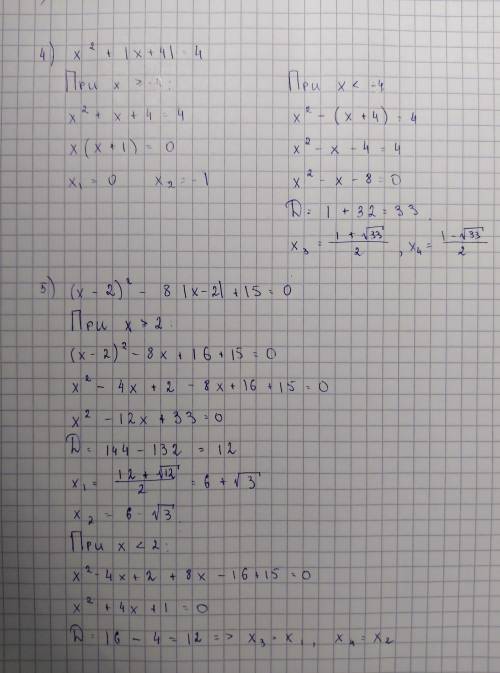 4) x² + |x+4| = 4
При x > -4:
x² + x + 4 = 4
x(x+1) = 0
x₁ = 0 x₂ = -1
При x < -4
x² - (x+4) = 4
x² - x - 4 = 4
x² - x - 8 = 0
D = 1 + 32 = 33
x₃ = (1 + √33)/2 , x₄ = (1 - √33)/2
5) (x - 2)² - 8 |x-2| + 15 = 0
При x > 2:
(x - 2)² - 8x + 16 + 15 = 0
x² - 4x + 2 - 8x + 16 + 15 = 0
x² - 12x + 33 = 0
D = 144 - 132 = 12
x₁ = (12 + √12)/2 = 6 + √3
x₂ = 6 - √3
При x < 2:
x² - 4x + 2 + 8x - 16 + 15 = 0
x² + 4x + 1 = 0
D = 16 - 4 = 12 => x₃ = x₁, x₄ = x₂